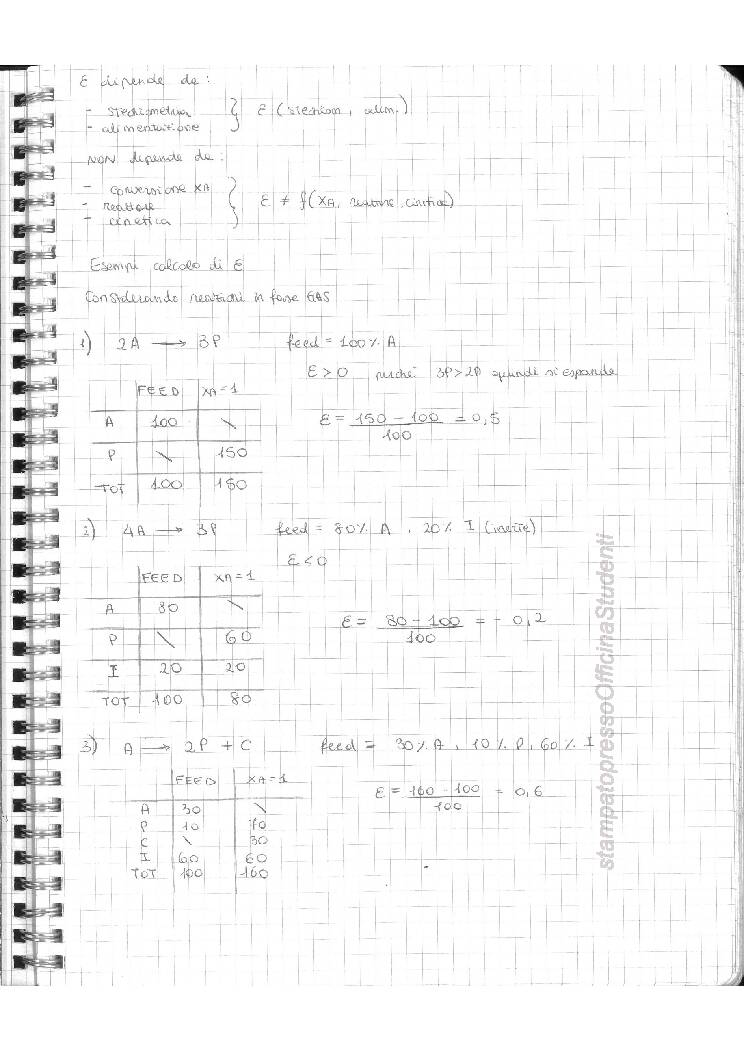 ε dipende da:
- stechiometria
- alimentazione } ε (stechiom, alim.)
NON dipende da:
- conversione XA
- reattore
- cinetica } ε ≠ f(XA, reattore, cinetica)
Esempi calcolo di ε
Considerando reazioni in fase GAS
1) 2A → 3P feed = 100% A
ε>0 perché 3P>2P quindi si espande
FEED XA=1
A 100 \
P \ 150
TOT 100 150
ε = 150 - 100 / 100 = 0,5
2) 4A → 3P feed = 80% A, 20% I (inerte)
ε<0
FEED XA=1
A 80 \
P \ 60
I 20 20
TOT 100 80
ε = 80 - 100 / 100 = - 0,2
3) A → 2P + C feed = 30% A, 10% P, 60% I
FEED XA=1
A 30 \
P 10 70
C \ 30
I 60 60
TOT 100 160
ε = 160 - 100 / 100 = 0,6
stampatopressoOfficinaStudenti